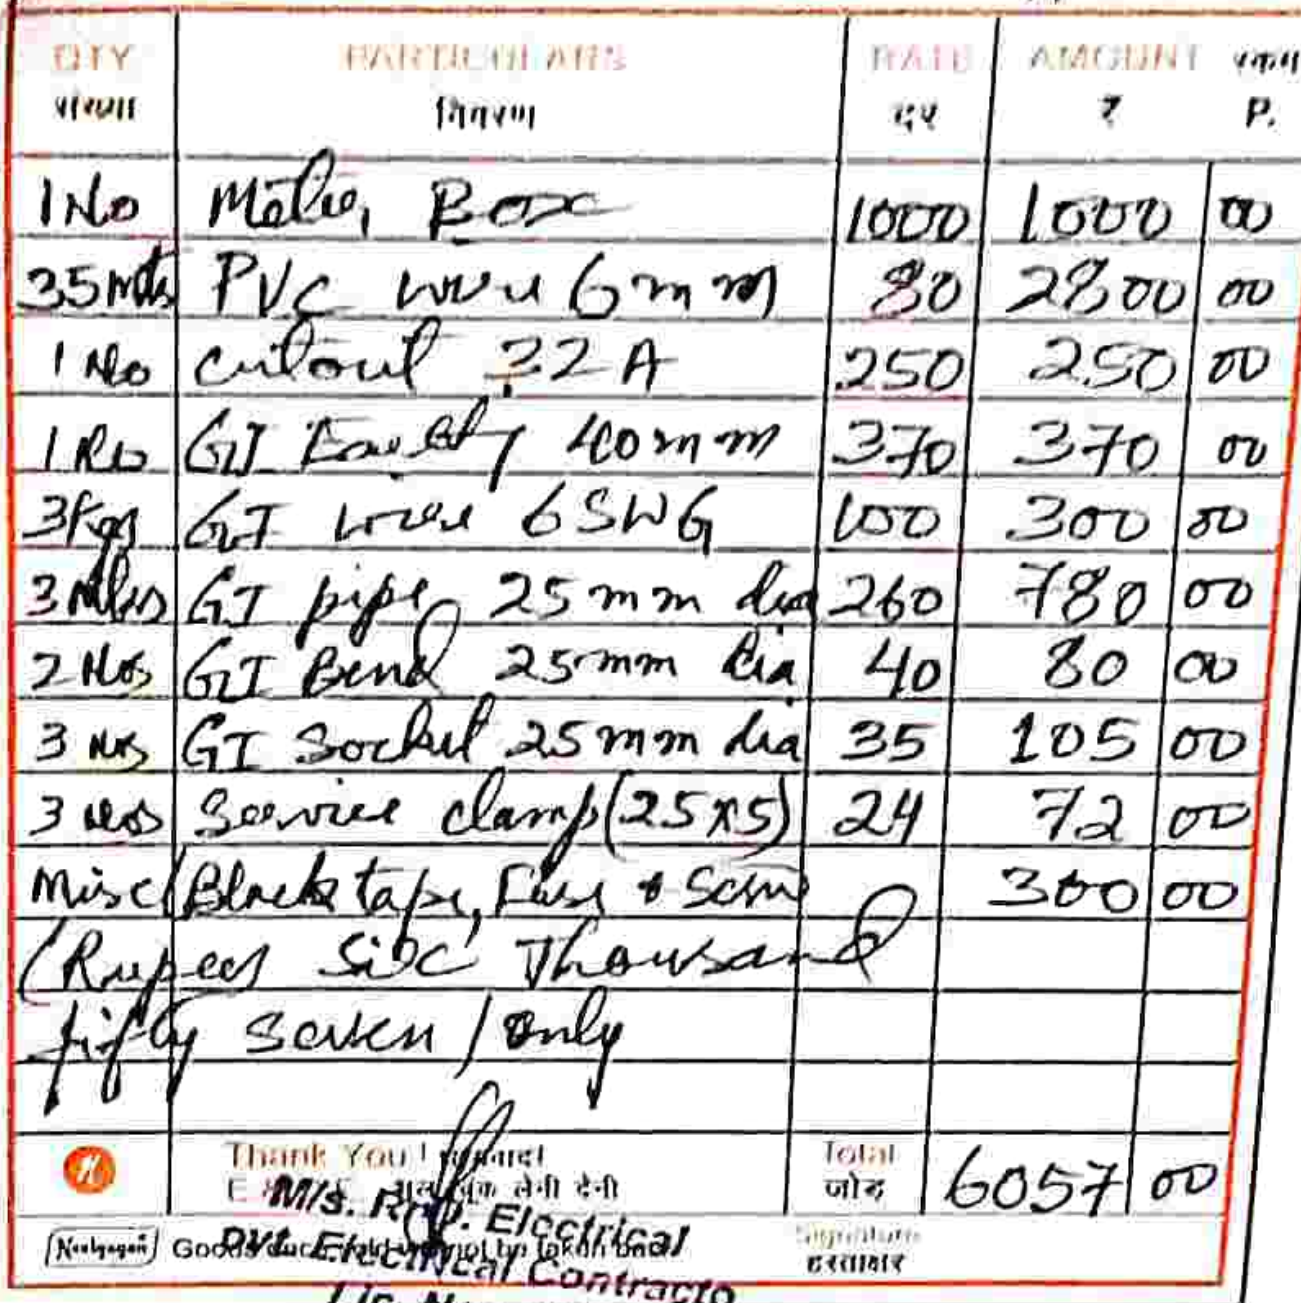 QTY PARTICULARS RATE AMOUNT रकम
संख्या विवरण दर ₹ P.
1 No Meter Box 1000 1000 00
35 Mts PVC wire 6mm 80 2800 00
1 No cutout 32 A 250 250 00
1 No GI Earth 40mm 370 370 00
3 Kgs GI wire 6 SWG 100 300 00
3 Mtrs GI pipe 25mm dia 260 780 00
2 Nos GI Bend 25mm dia 40 80 00
3 Nos GI Socket 25mm dia 35 105 00
3 Nos Service clamp (25x5) 24 72 00
Misc (Black tape, Fuse + Screw 300 00
(Rupees Six Thousand
fifty seven / only
Thank You ! धन्यवाद! Total
E. & O.E. भूल चूक लेनी देनी जोड़ 6057 00
M/s. Electrical
Neelgagan Goods once sold will not be taken back Signature
Pvt. Electrical Contracto हस्ताक्षर